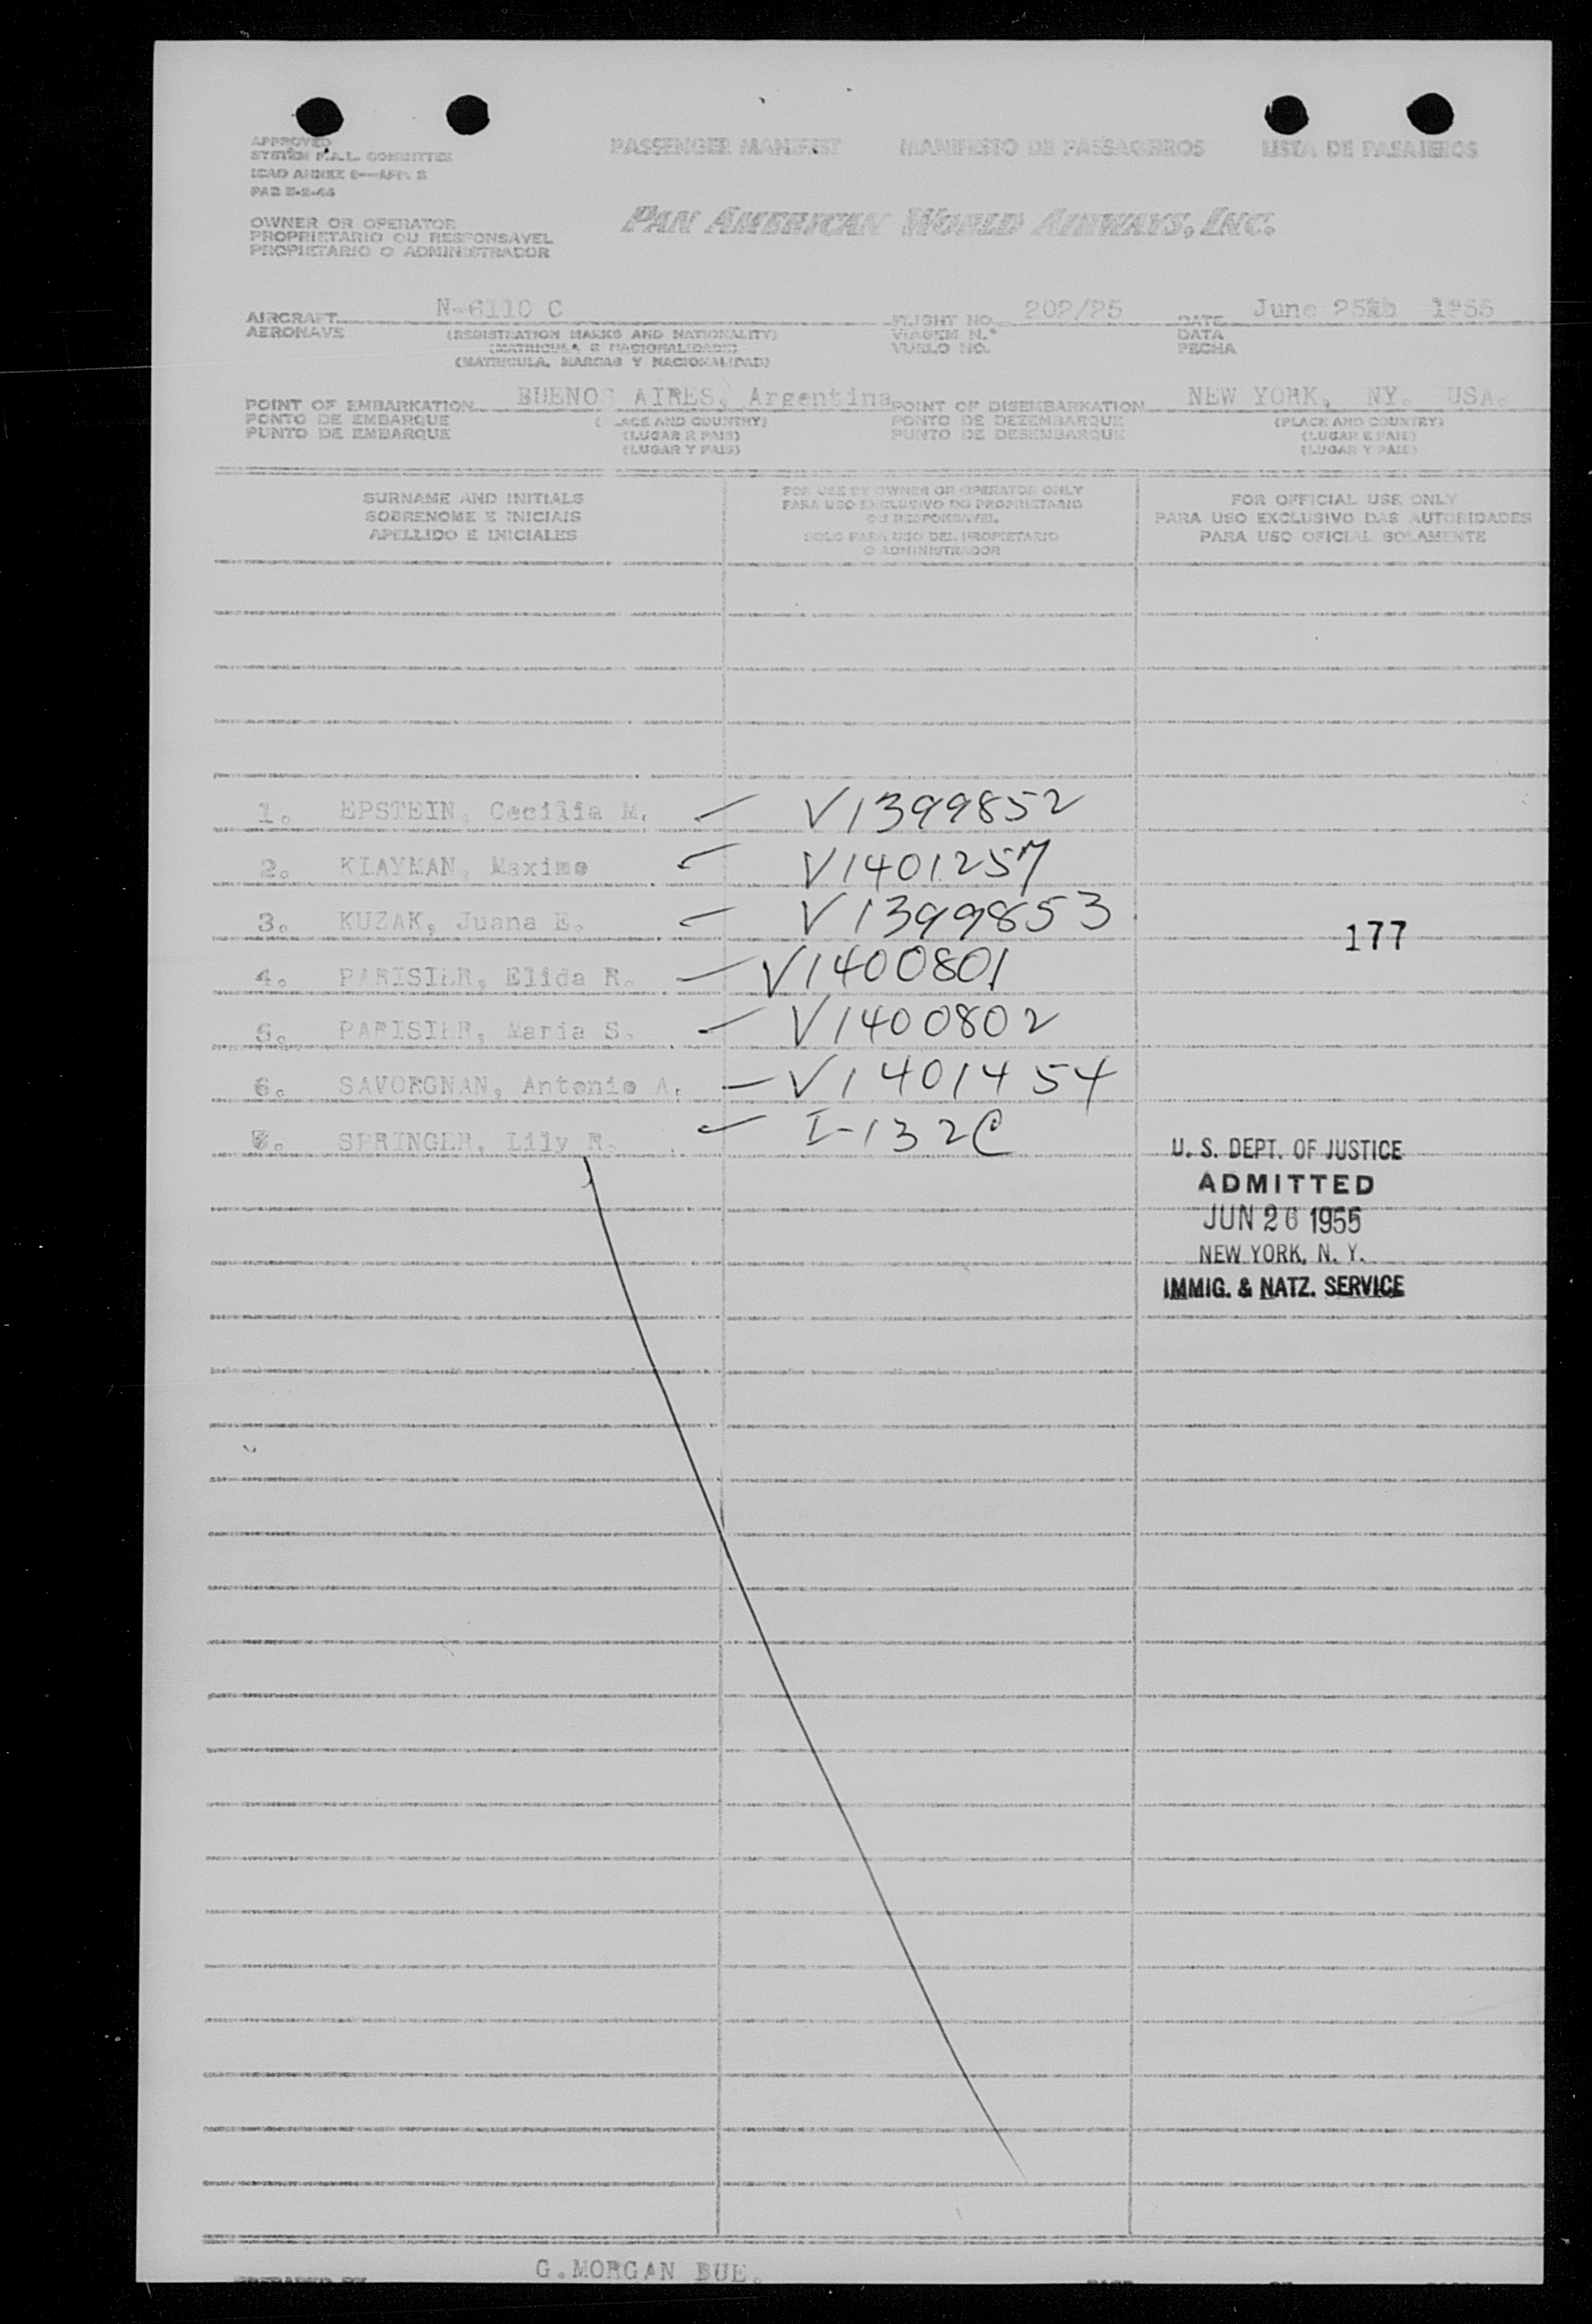 APPROVED
SYSTEM F.A.L. COMMITTEE
ICAO ANNEX 9—APP. 2
PAB
PASSENGER MANIFEST MANIFESTO DE PASSAGEIROS LISTA DE PASAJEROS
OWNER OR OPERATOR
PROPRIETARIO OU RESPONSAVEL
PROPIETARIO O ADMINISTRADOR
PAN AMERICAN WORLD AIRWAYS, INC.
AIRCRAFT N-6110 C FLIGHT NO. 202/25 DATE June 25 1955
AERONAVE (REGISTRATION MARKS AND NATIONALITY) VIAGEM N.º DATA
(MATRICULA E NACIONALIDADE) VUELO NO. FECHA
(MATRICULA, MARCAS Y NACIONALIDAD)
POINT OF EMBARKATION BUENOS AIRES, Argentina POINT OF DISEMBARKATION NEW YORK, NY. USA.
PONTO DE EMBARQUE (PLACE AND COUNTRY) PONTO DE DEZEMBARQUE (PLACE AND COUNTRY)
PUNTO DE EMBARQUE (LUGAR E PAIS) PUNTO DE DESEMBARQUE (LUGAR E PAIS)
(LUGAR Y PAIS) (LUGAR Y PAIS)
SURNAME AND INITIALS
SOBRENOME E INICIAIS
APELLIDO E INICIALES
FOR USE BY OWNER OR OPERATOR ONLY
PARA USO EXCLUSIVO DO PROPRIETARIO
OU RESPONSAVEL
SOLO PARA USO DEL PROPIETARIO
O ADMINISTRADOR
FOR OFFICIAL USE ONLY
PARA USO EXCLUSIVO DAS AUTORIDADES
PARA USO OFICIAL SOLAMENTE
1. EPSTEIN, Cecilia M. — V1399852
2. KLAYMAN, Maximo — V1401257
3. KUZAK, Juana E. — V1399853
177
4. PARISIER, Elida R. — V1400801
5. PARISIER, Maria S. — V1400802
6. SAVORGNAN, Antonio A. — V1401454
7. SPRINGER, Lily R. — I-132C
U. S. DEPT. OF JUSTICE
ADMITTED
JUN 26 1955
NEW YORK, N. Y.
IMMIG. & NATZ. SERVICE
G.MORGAN BUE.